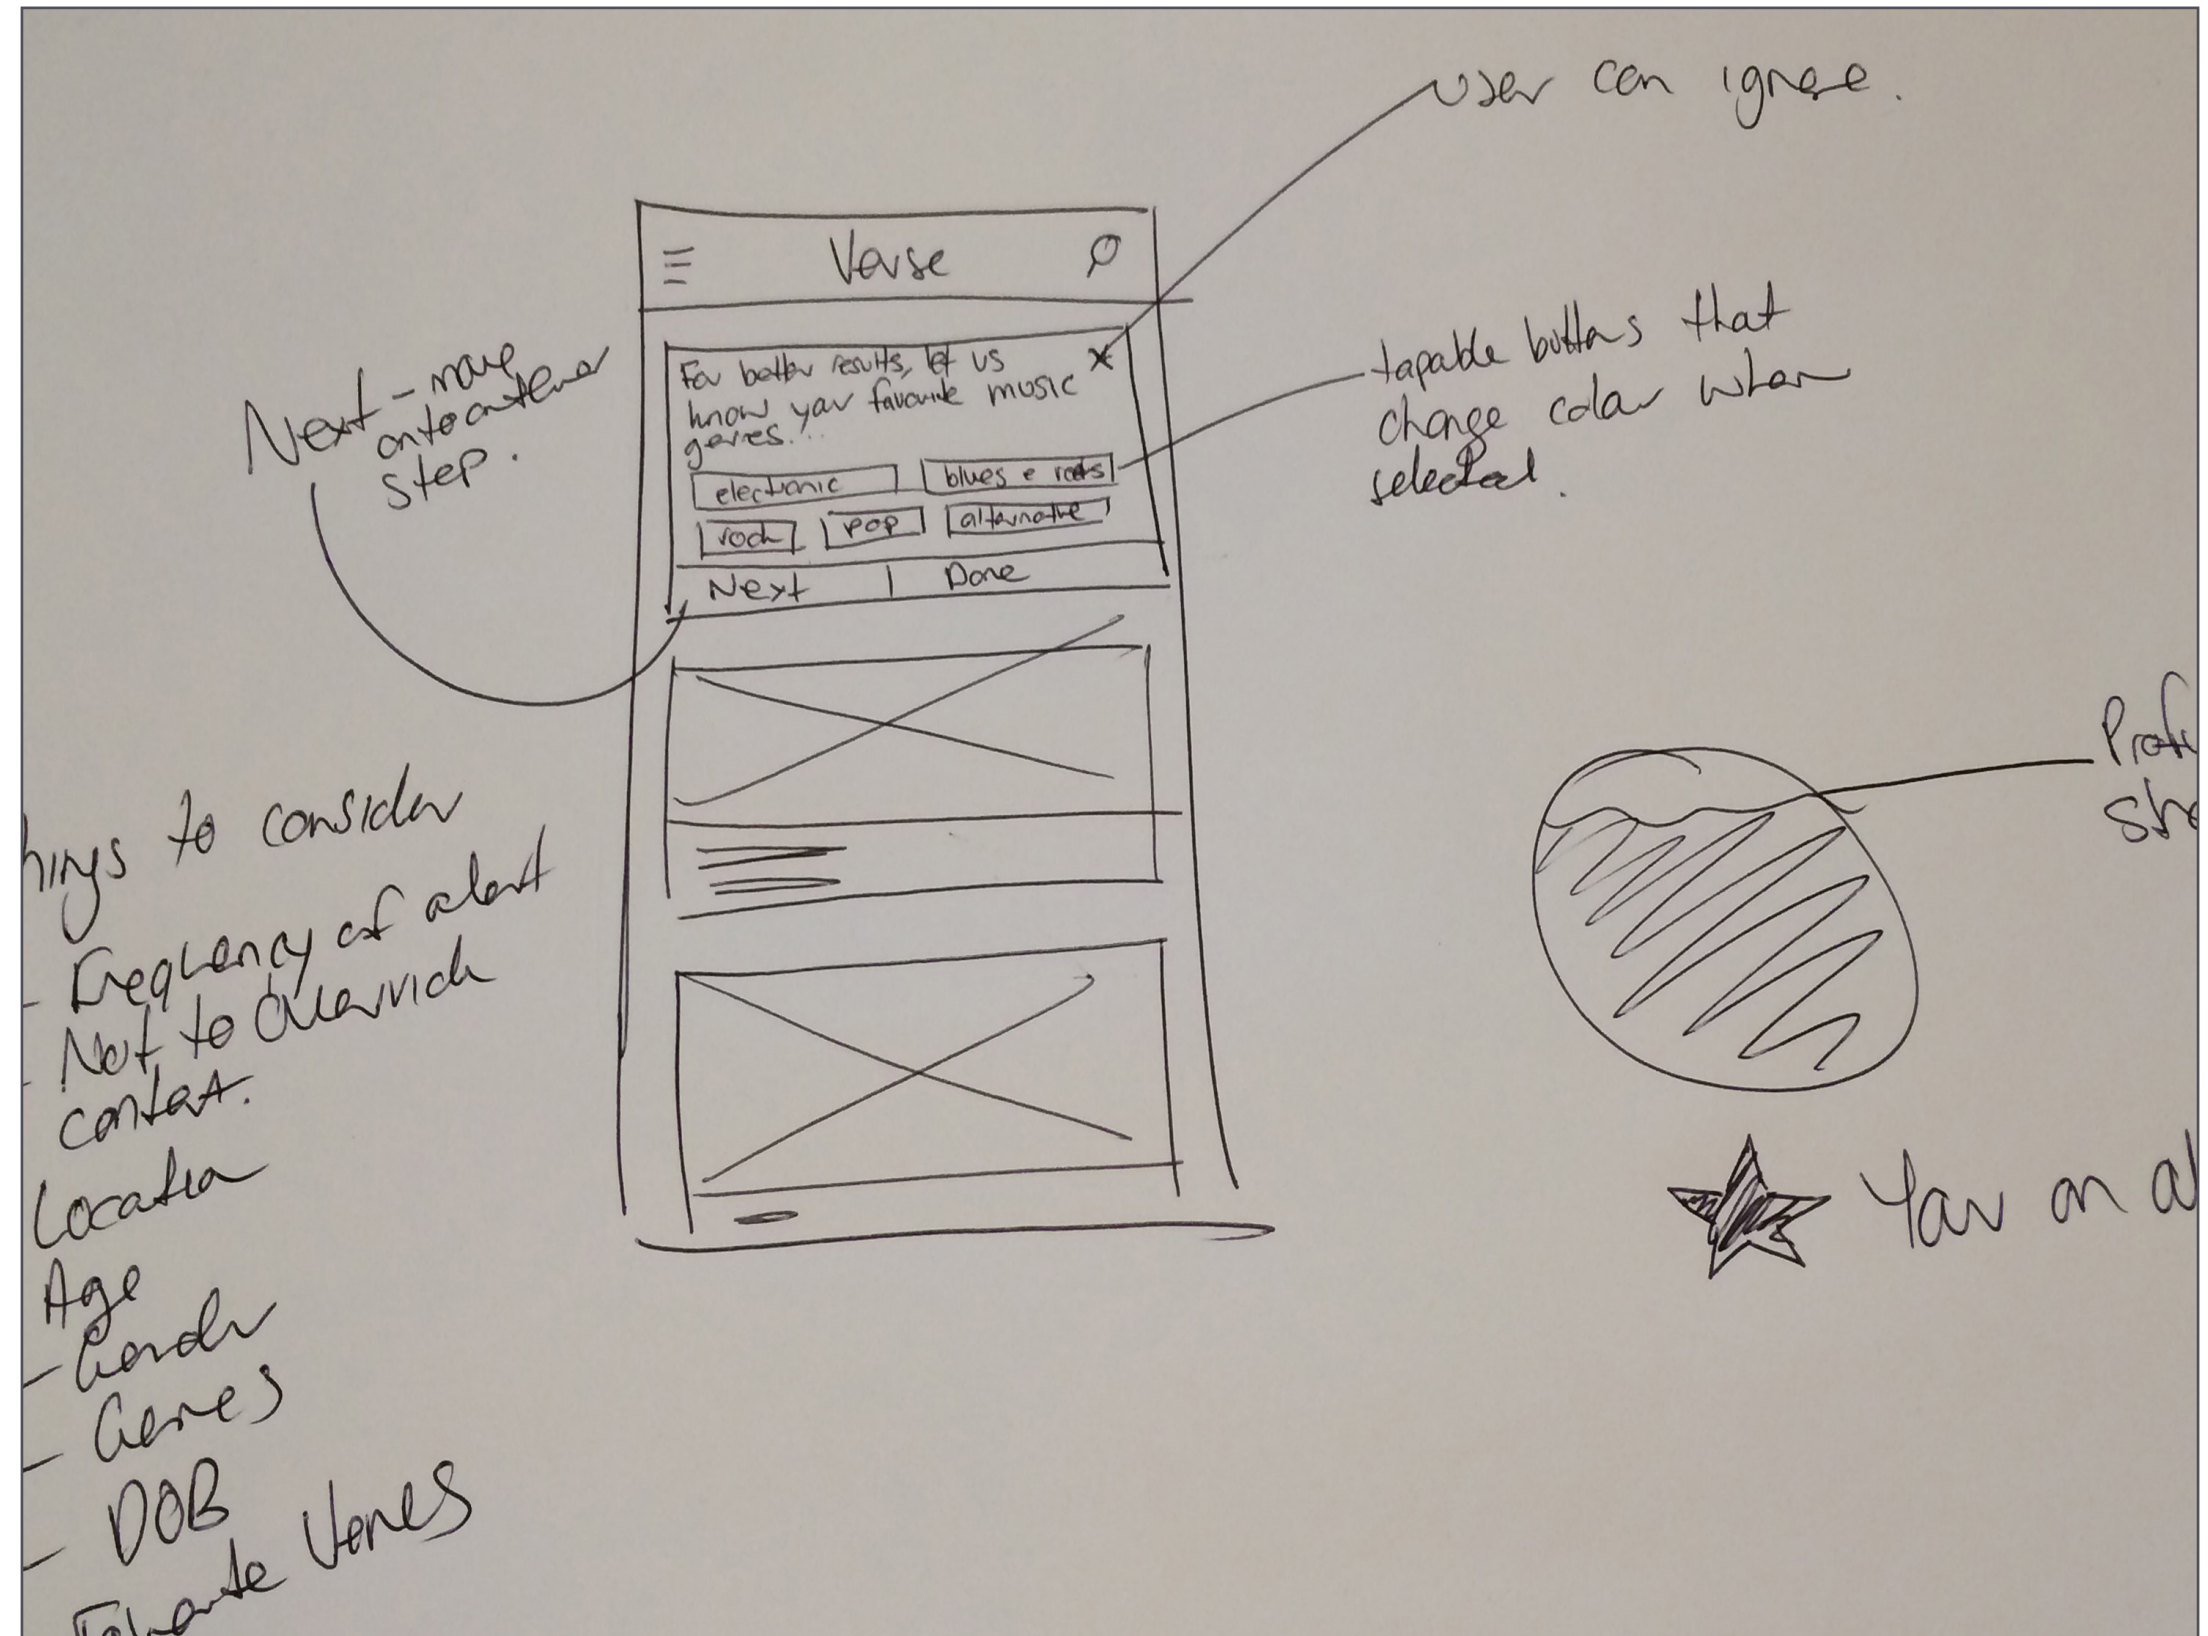 User can ignore.
Verse
For better results, let us
know your favourite music
genres...
electronic
blues & roots
rock
pop
alternative
Next | Done
Next - move
onto another
step.
tapable buttons that
change colour when
selected.
hings to consider
- Frequency of alert
- Not to override
content.
Location
Age
- Gender
- Genres
- DOB
Favourite Venues
Profi
Your on a